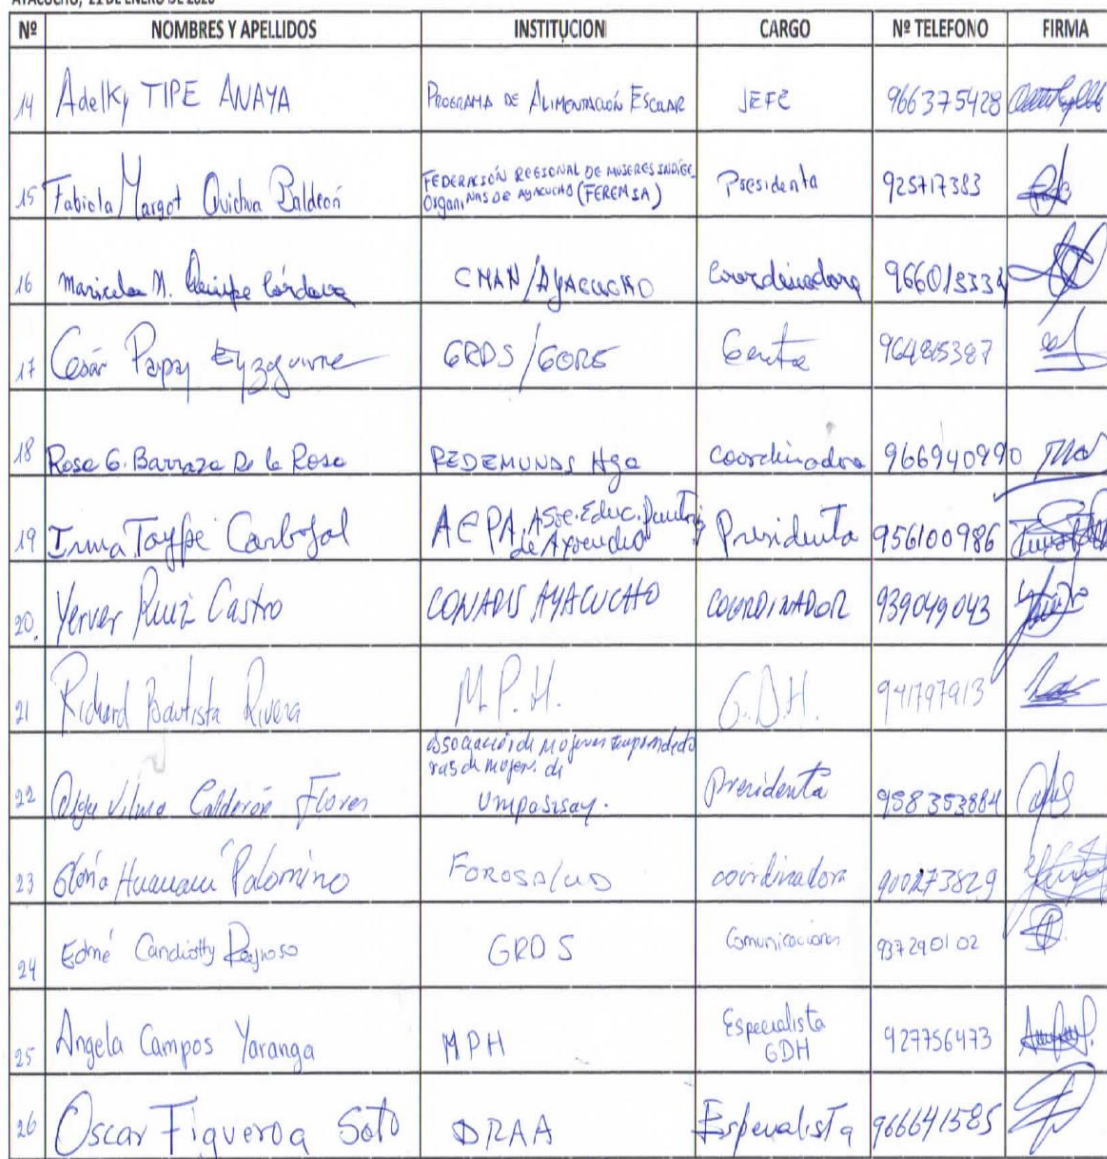 AYACUCHO, 21 DE ENERO DE 2020
Nº NOMBRES Y APELLIDOS INSTITUCION CARGO Nº TELEFONO FIRMA
14 Adelky TIPE ANAYA PROGRAMA DE ALIMENTACIÓN ESCOLAR JEFE 966375428
15 Fabiola Margot Quichua Baldeón FEDERACIÓN REGIONAL DE MUJERES INDÍGE- Presidenta 925717383
Organi. NAS DE AYACUCHO (FEREMIA)
16 Maricela M. Quispe Córdova CMAN/AYACUCHO Coordinadora
17 César Papay Eyzaguirre GRDS/GORE 964815387
18 Rosa G. Barraza De la Rosa REDEMUNDS Hga Coordinadora 966940990
19 Irma Taype Carbajal AEPA, Asoc. Educ. Presidenta 956100986
de Ayacucho
20. Yerver Ruiz Castro CONADIS AYACUCHO COORDINADOR 939049043
21 Richard Bautista Rivera M.P.H. G.D.H. 941797913
22 Olga Vilma Calderón Flores Asociación de mujeres emprendedo Presidenta 958353884
ras de mujer. de
Umpasisay.
23 Gloria Huamaní Palomino FOROSALUD coordinadora 900273829
24 Edmé Candiotty Reynoso GRDS Comunicaciones 937290102
25 Angela Campos Yaranga MPH Especialista 927756473
GDH
26 Oscar Figueroa Soto DRAA Especialista 966641585